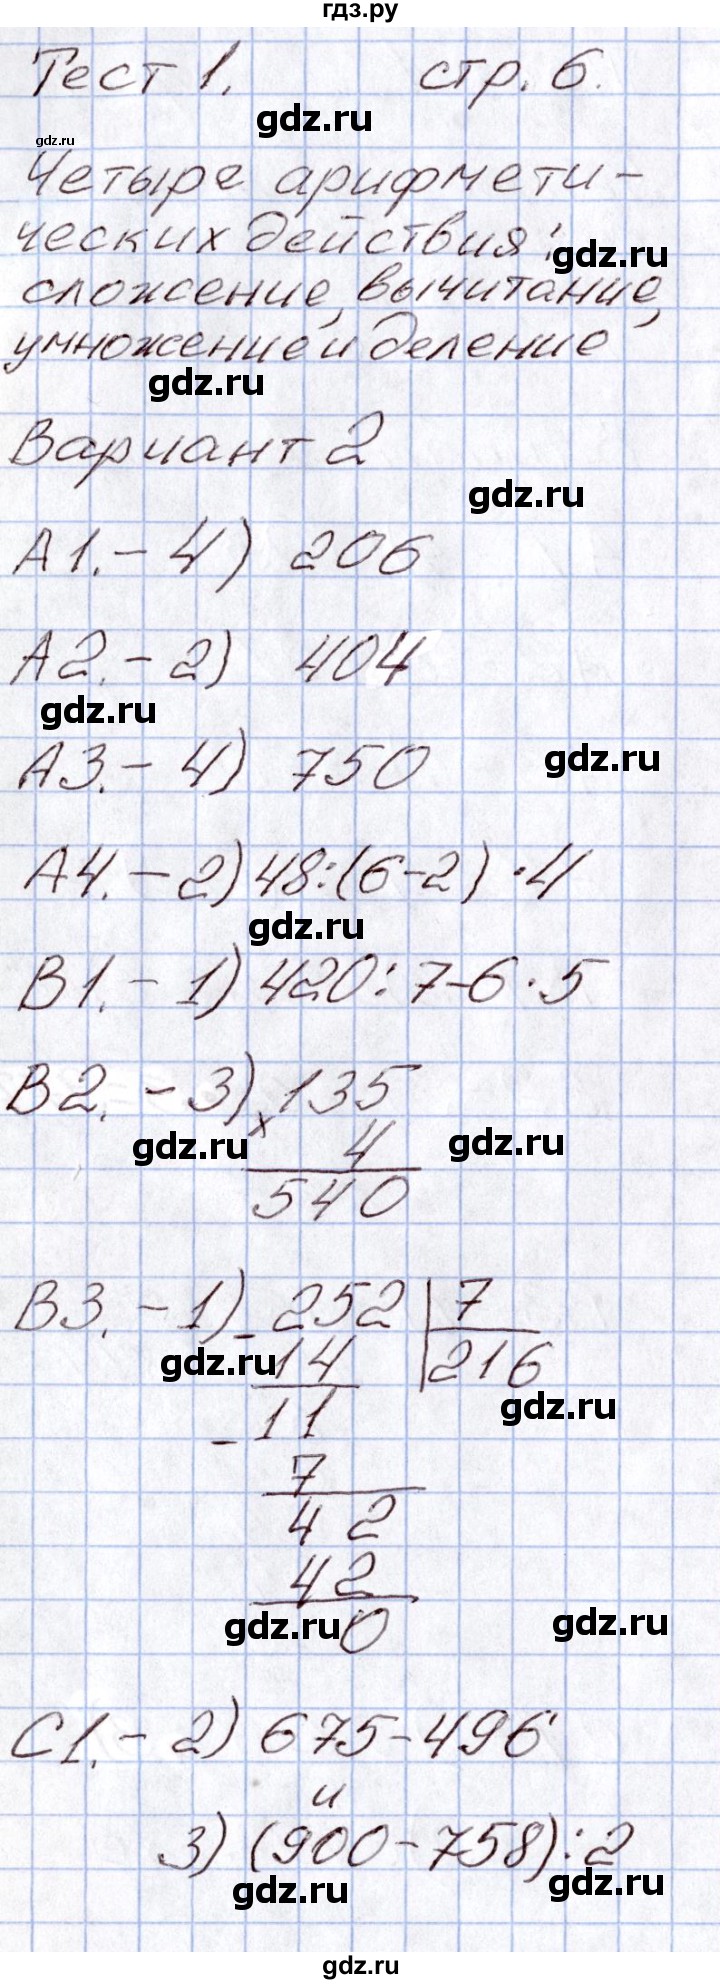 гдз.ру
Тест 1. стр. 6.
gdz.ru
gdz.ru
Четыре арифмети-
ческих действия:
gdz.ru
сложение, вычитание,
умножение и деление
gdz.ru
Вариант 2
gdz.ru
А1.- 4) 206
А2.- 2) 404
gdz.ru
А3.- 4) 750
gdz.ru
А4.- 2) 48:(6-2)·4
gdz.ru
В1.- 1) 420:7-6·5
В2.- 3) × 135
gdz.ru 4 gdz.ru
540
В3.- 1) - 252 | 7
gdz.ru 14 216
gdz.ru
- 11
7
42
42
gdz.ru 0 gdz.ru
С1.- 2) 675-496
и
3) (900-758):2
gdz.ru gdz.ru
gdz.ru